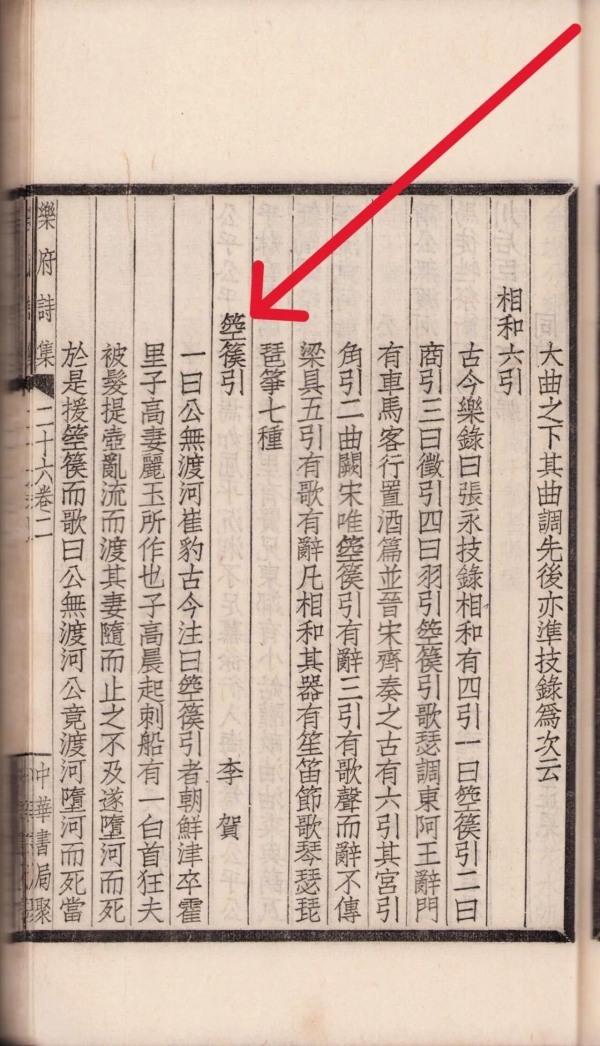 大曲之下其曲調先後亦準技錄爲次云
相和六引
古今樂錄曰張永技錄相和有四引一曰箜篌引二曰
商引三曰徵引四曰羽引箜篌引歌瑟調東阿王辭門
有車馬客行置酒篇並晉宋齊奏之古有六引其宮引
角引二曲闕宋唯箜篌引有辭三引有歌聲而辭不傳
梁具五引有歌有辭凡相和其器有笙笛節歌琴瑟琵
琶箏七種
箜篌引 李賀
一曰公無渡河崔豹古今注曰箜篌引者朝鮮津卒霍
里子高妻麗玉所作也子高晨起刺船有一白首狂夫
被髮提壺亂流而渡其妻隨而止之不及遂墮河而死
於是援箜篌而歌曰公無渡河公竟渡河墮河而死當
樂府詩集 二十六卷二 中華書局聚